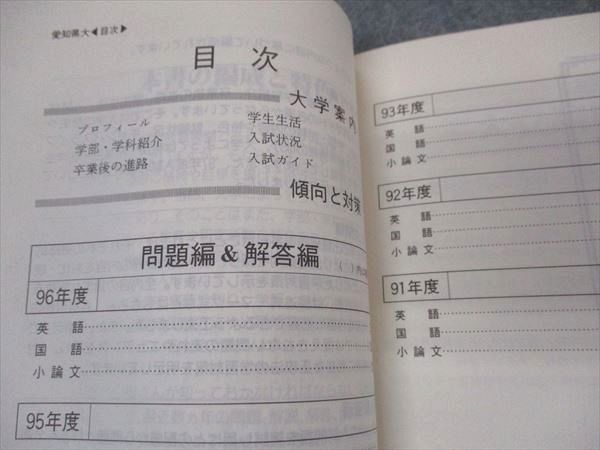 愛知県大◀目次▶
目 次
大学案内
プロフィール
学部・学科紹介
卒業後の進路
学生生活
入試状況
入試ガイド
傾向と対策
問題編&解答編
96年度
英 語
国 語
小論文
95年度
93年度
英 語
国 語
小論文
92年度
英 語
国 語
小論文
91年度
英 語
国 語
小論文